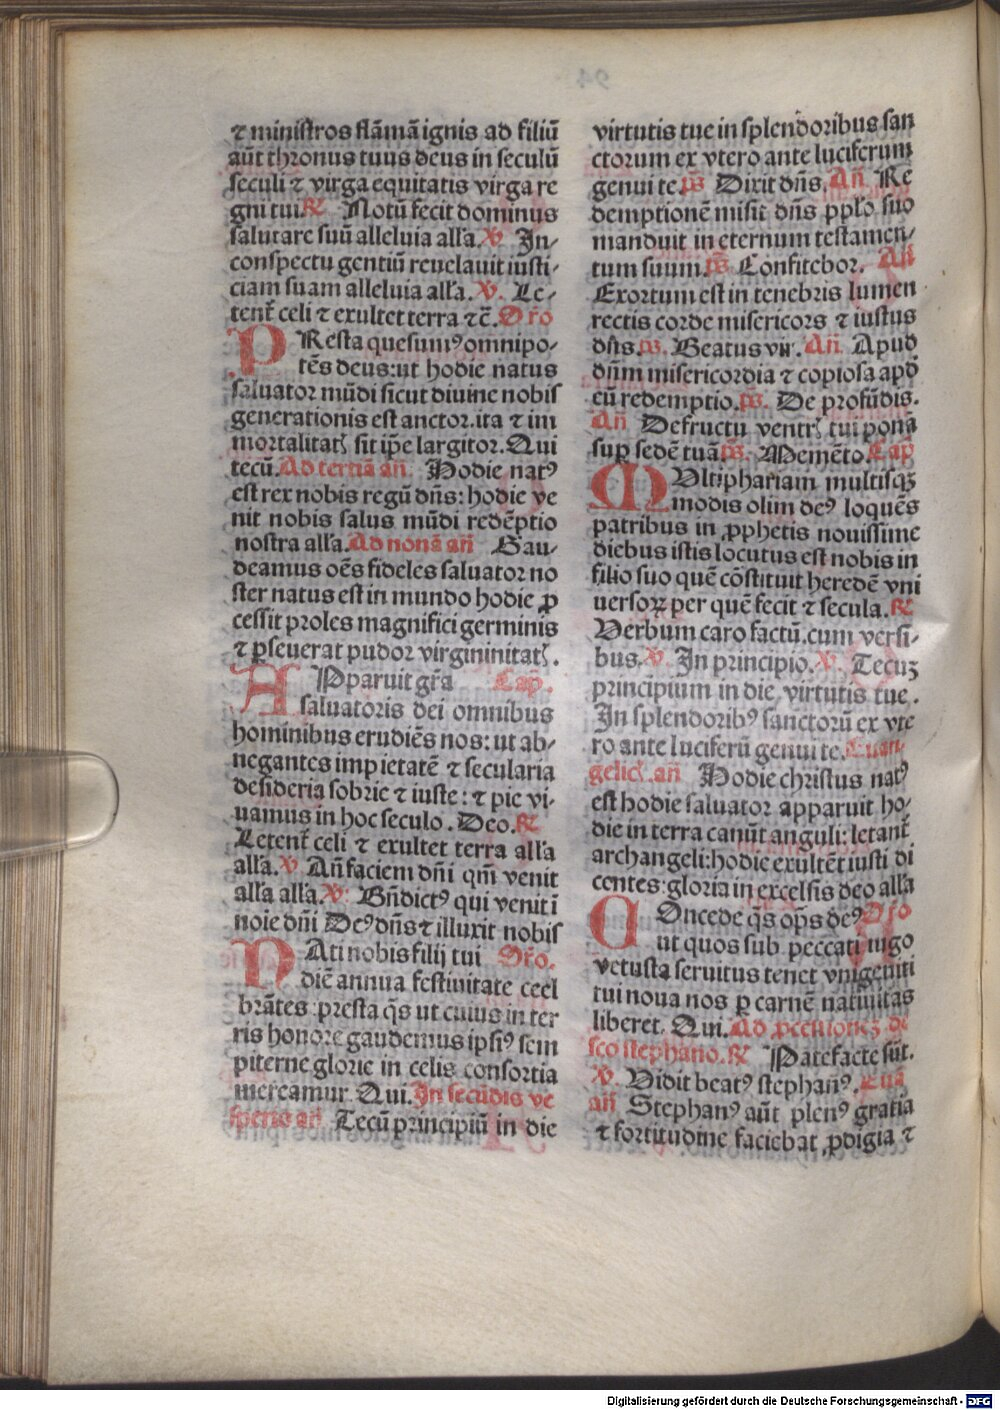 ⁊ ministros flāmā ignis ad filiū
aūt thronus tuus deus in seculū
seculi ⁊ virga equitatis virga re
gni tui. ℟ Notū fecit dominus
salutare suū alleluia alľa. ℣ In⸗
conspectu gentiū reuelauit iusti⸗
ciam suam alleluia alľa. ℣. Le⸗
tenť celi ⁊ exultet terra ⁊c̄. Oŕo
PResta quesumꝰ omnipo⸗
tēs deus: ut hodie natus
saluator mūdi sicut diuine nobis
generationis est anctor. ita ⁊ im
mortalitatꝭ sit ip̄e largitor. Qui
tecū. Ad terciā an̄. Hodie natꝰ
est rex nobis regū dn̄s: hodie ve
nit nobis salus mūdi redēptio
nostra alľa. Ad nonā an̄ Gau⸗
deamus oēs fideles saluator no
ster natus est in mundo hodie ꝓ
cessit proles magnifici germinis
⁊ ꝑseuerat pudor virgininitatꝭ.
APparuit gŕa Cap̄.
saluatoris dei omnibus
hominibus erudiēs nos: ut ab⸗
negantes impietatē ⁊ secularia
desideria sobrie ⁊ iuste: ⁊ pie vi⸗
uamus in hoc seculo. Deo. ℟
Letenť celi ⁊ exultet terra alľa
alľa. ℣ An̄ faciem dn̄i qm̄ venit
alľa alľa. ℣ Bn̄dictꝰ qui venit ī
noie dn̄i Deꝰ dn̄s ⁊ illuxit nobis
NAti nobis filij tui Oŕo.
diē annua festiuitate ceel
brātes: presta q̄s ut cuius in ter
ris honore gaudemus ipsiꝰ sem
piterne glorie in celis consortia
mereamur. Qui. In secūdis ve
speris an̄. Tecū principiū in die
virtutis tue in splendoribus san
ctorum ex vtero ante luciferum
genui te. ps̄ Dixit dn̄s. An̄ Re
demptionē misit dn̄s ppľo suo
manduit in eternum testamen⸗
tum suum. ps̄ Confitebor. An̄
Exortum est in tenebris lumen
rectis corde misericors ⁊ iustus
dn̄s. ps̄. Beatus vir. An̄. Apud
dn̄m misericordia ⁊ copiosa apd̄
eū redemptio. ps̄. De profūdis.
An̄ Defructu ventrꝭ tui ponā
suꝑ sedē tuā ps̄. Memēto. Cap̄
MUltiphariam multisqꝫ
modis olim deꝰ loquēs
patribus in ꝓphetis nouissime
diebus istis locutus est nobis in
filio suo quē cōstituit heredē vni
uersoꝝ per quē fecit ⁊ secula. ℟
Verbum caro factū. cum versi⸗
bus. ℣. In principio. ℣. Tecuꝫ
principium in die virtutis tue.
In splendoribꝰ sanctorū ex vte
ro ante luciferū genui te. Euan⸗
gelicꝭ. an̄ Hodie christus natꝰ
est hodie saluator apparuit ho⸗
die in terra canūt anguli: letanť
archangeli: hodie exultēt iusti di
centes: gloria in excelsis deo alľa
COncede q̄s op̄s deꝰ Oŕo
ut quos sub peccati iugo
vetusta seruitus tenet vnigeniti
tui noua nos ꝑ carnē natiuitas
liberet. Qui. Ad ꝓcessioneꝫ de
sco stephano. ℟ Patefacte sūt.
℣. Vidit beatꝰ stephanꝰ. Euā
an̄ Stephanꝰ aūt plenꝰ gratia
⁊ fortitudine faciebat ꝓdigia ⁊
Digitalisierung gefördert durch die Deutsche Forschungsgemeinschaft - DFG